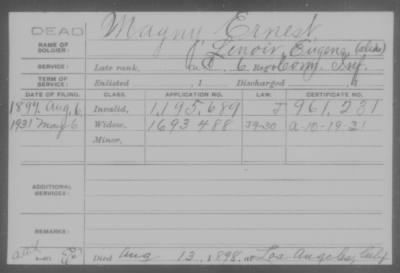 DEAD
Magny Ernest
NAME OF SOLDIER: Lenoir, Eugene (alias)
SERVICE: Late rank, Co. 6 Reg't Inf.
TERM OF SERVICE: Enlisted , 1 Discharged , 1
DATE OF FILING. CLASS. APPLICATION NO. LAW. CERTIFICATE NO.
1897 Aug. 6, Invalid, 1,195,689 J 961,231
1931 May-6 Widow, 1693488 A-10-19-31
Minor,
ADDITIONAL SERVICES:
REMARKS:
Died Aug 13, 1898, at Los Angeles, Calif